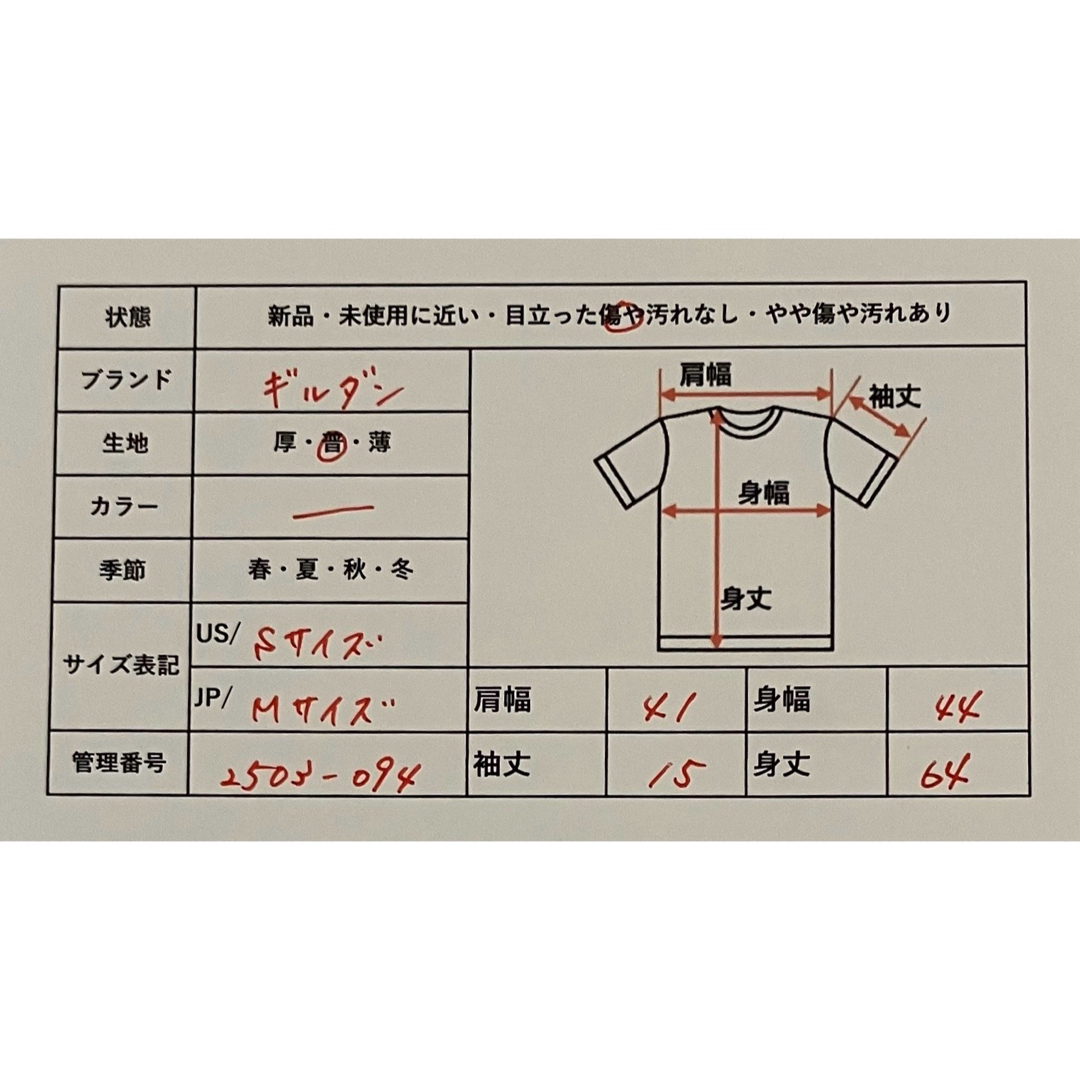 状態 新品・未使用に近い・目立った傷や汚れなし・やや傷や汚れあり
ブランド ギルダン
生地 厚・普・薄
カラー —
季節 春・夏・秋・冬
サイズ表記
US/ Sサイズ
JP/ Mサイズ
管理番号 2503-094
肩幅
袖丈
身幅
身丈
肩幅 41 身幅 44
袖丈 15 身丈 64